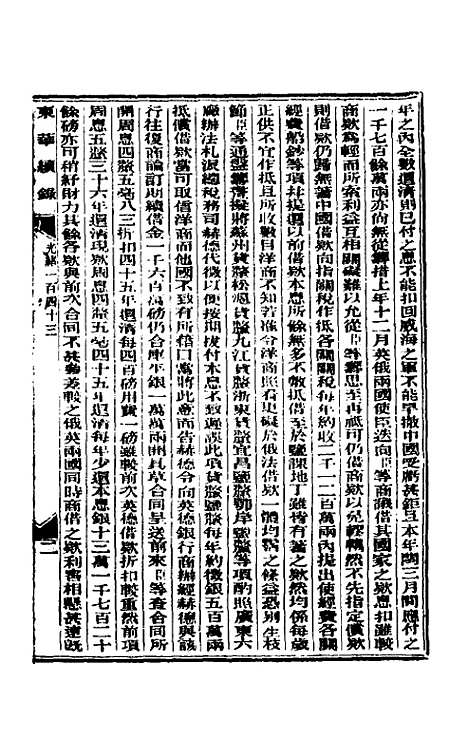 年之內全數還清則已付之息不能扣回威海之軍不能早撤中國受虧甚鉅且本年閏三月間應付之
一千七百餘萬兩亦尚無從籌措上年十二月英俄兩國使臣迭向臣等商議借其國家之款息扣雖較
商款爲輕而所索利益互相關礙難以允從臣等輾思至再祇可仍借商款以免轇轕然不先指定償款
則借款仍歸無著中國借款向指關稅作抵各關關稅每年約收二千一二百萬兩內提出使經費各關
經費船鈔等項幷提還以前借款本息所餘無多不敷抵借至於鹽課地丁雖皆有著之款然均係每歲
正供不宜作抵且所收數目洋商不知若准令洋商照看更礙於俄法借款一體均霑之條益恐別生枝
節臣等通盤籌畫擬將蘇州貨釐松滬貨釐九江貨釐浙東貨釐宜昌鹽釐鄂岸鹽釐等項酌照廣東六
廠辦法札派總稅務司赫德代徵以便按期撥付本息不致遲誤此項貨釐鹽釐每年約徵銀五百萬兩
抵償借款當可取信洋商而他國不致有所藉口當將此意面告赫德令向英德銀行商辦經赫德與該
行往復商論訂明續借金一千六百萬磅仍合庫平銀一萬萬兩開具草合同呈送前來臣等查合同所
開周息四釐五毫八三折扣四十五年還清每四百磅用費一磅雖較前次英德借款折扣較重然前項
周息五釐三十六年還清現款周息四釐五毫四十五年還清每年少還本息銀十三萬一千七百二十
餘磅亦可稍紓財力其餘各款與前次合同不甚參差較之俄英兩國同時商借之款利害相懸甚遠既
東華續錄
光緒一百四十三
二